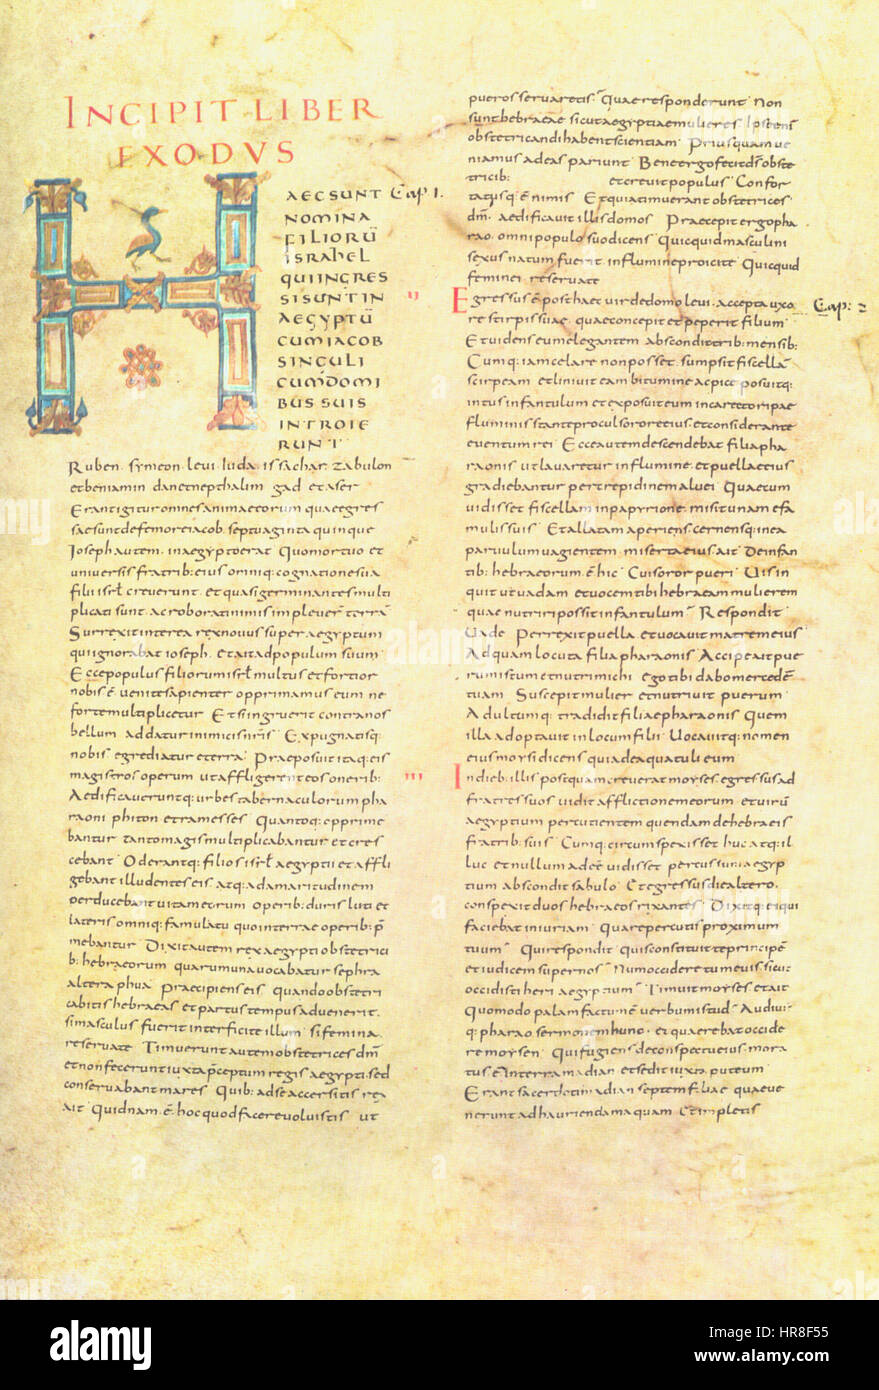 INCIPIT·LIBER
EXODVS
HAEC SUNT Cap 1.
NOMINA
FILIORŪ
ISRAHEL
QUI INGRES
SI SUNT IN
AEGYPTŪ
CUM IACOB
SINGULI
CUM DOMI
BUS SUIS
INTROIE
RUNT
Ruben· symeon· levi· iuda· issachar· zabulon
et beniamin dan et nepthalim gad et aser
Erant igitur omnes animae eorum quae egres
sae sunt de femore iacob· septuaginta quinque
Ioseph autem· in aegypto erat Quo mortuo et
universis fratrib: eius omniq; cognatione sua
filii isrł creverunt· et quasi germinantes multi
plicati sunt· ac roborati nimis impleverт̄ terrā
Surrexit interea rex novus super aegyptum
qui ignorabat ioseph· et ait ad populum suum
Ecce populus filiorum isrł multus et fortior
nobis ē· venite sapienter opprimamus eum ne
forte multiplicetur Et si ingruerit contra nos
bellum addatur inimicis n̄ris Expugnatisq;
nobis egrediatur e terra Praeposuit itaq; eis
magistros operum ut affligerent eos onerib:
Aedificaveruntq; urbes tabernaculorum pha
raoni phiton et ramesses Quantoq; opprime
bantur tanto magis multiplicabantur et cres
cebant Oderantq; filios isrł aegyptii et affli
gebant illudentes eis atq; ad amaritudinem
perducebant vitam eorum operib: duris luti et
lateris omniq; famulatu quo in terrae operib: p̄
mebantur Dixit autem rex aegypti obstetrici
b: hebraeorum quarum una vocabatur sephra
altera phua Praecipiens eis quando obstetri
cabitis hebraeas et partus tempus advenerit·
si masculus fuerit interficite illum si femina
reservate Timuerunt autem obstetrices dm̄
et non fecerunt iuxta p̄ceptum regis aegypti· sed
conservabant mares Quib: ad se accersitis rex
ait Quidnam ē· hoc quod facere voluistis ut
pueros servaretis Quae responderunt Non
sunt hebraeae sicut aegyptiae mulieres Ipsae n̄
obstetricandi habent scientiam Priusquam ve
niamus ad eas pariunt Bene ergo fecit ds̄ obste
tricib: et crevit populus Confor
tatusq; ē nimis Et quia timuerant obstetrices
dm̄ aedificavit illis domos Praecepit ergo pha
rao· omni populo suo dicens Quicquid masculini
sexus natum fuerit in flumine proicite Quicquid
feminei reservate
II Egressus ē post haec vir de domo levi· accepta uxo Cap: 2
re stirpis suae quae concepit et peperit filium
Et videns eum elegantem abscondit trib: mensib:
Cumq; iam celare non posset· sumpsit fiscellā
scirpeam et linivit eam bitumine ac pice posuitq;
intus infantulum et exposuit eum in carecto ripae
fluminis stante procul sorore eius et considerante
eventum rei Ecce autem descendebat filia pha
raonis ut lavaretur in flumine· et puellae eius
gradiebantur per crepidinem alvei Quae cum
vidisset fiscellam in papyrione· misit unam e fa
mulis suis Et allatam aperiens cernensq; in ea
parvulum vagientem miserta eius ait De infan
tib: hebraeorum ē hic Cui soror pueri Vis in
quit ut vadam et vocem tibi hebraeam mulierem
quae nutrire possit infantulum Respondit
Vade Perrexit puella et vocavit matrem eius
Ad quam locuta filia pharaonis Accipe ait pue
rum istum et nutri mihi ego tibi dabo mercedē
tuam Suscepit mulier et nutrivit puerum
Adultumq; tradidit filiae pharaonis Quem
illa adoptavit in locum filii Vocavitq; nomen
eius morsi dicens quia de aqua tuli eum
III In dieb: illis postquam creverat moyses· egressus ad
fratres suos vidit afflictionem eorum· et virū
aegyptium percutientem quendam de hebraeis
fratrib: suis Cumq; circumspexisset huc atq; il
luc et nullum adeē vidisset percussum aegyp
tium abscondit sabulo Et egressus die altero·
conspexit duos hebraeos rixantes Dixitq; ei qui
faciebat iniuriam Quare percutis proximum
tuum Qui respondit Quis constituit te principē
et iudicem super nos Num occidere tu me vis sicut
occidisti heri aegyptium Timuit moyses et ait
Quomodo palam factum ē verbum istud Audivit
q; pharao sermonem hunc· et quaerebat occide
re moysen Qui fugiens de conspectu eius· mora
tus ē in terra madian et sedit iuxta puteum
Erant sacerdoti madian septem filiae quae ve
nerunt ad hauriendam aquam Et impletis
alamy
alamy stock photo
Image ID: HR8F55
www.alamy.com